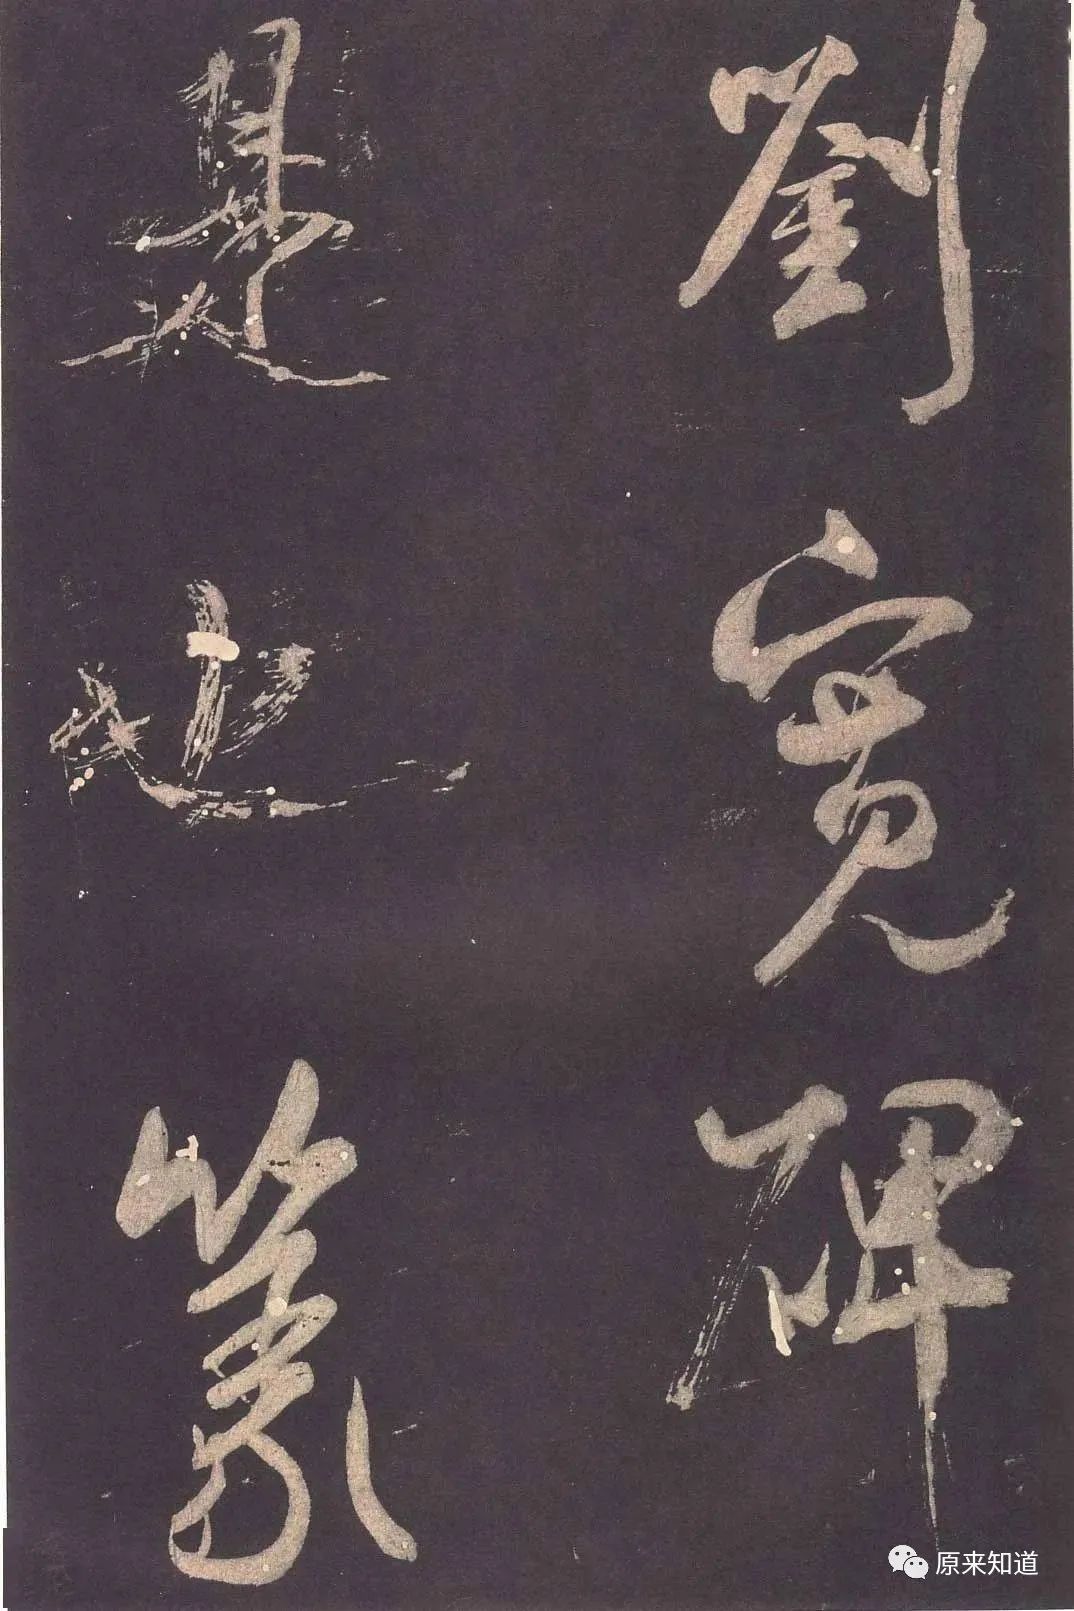 劉寬碑
是也篆
原来知道